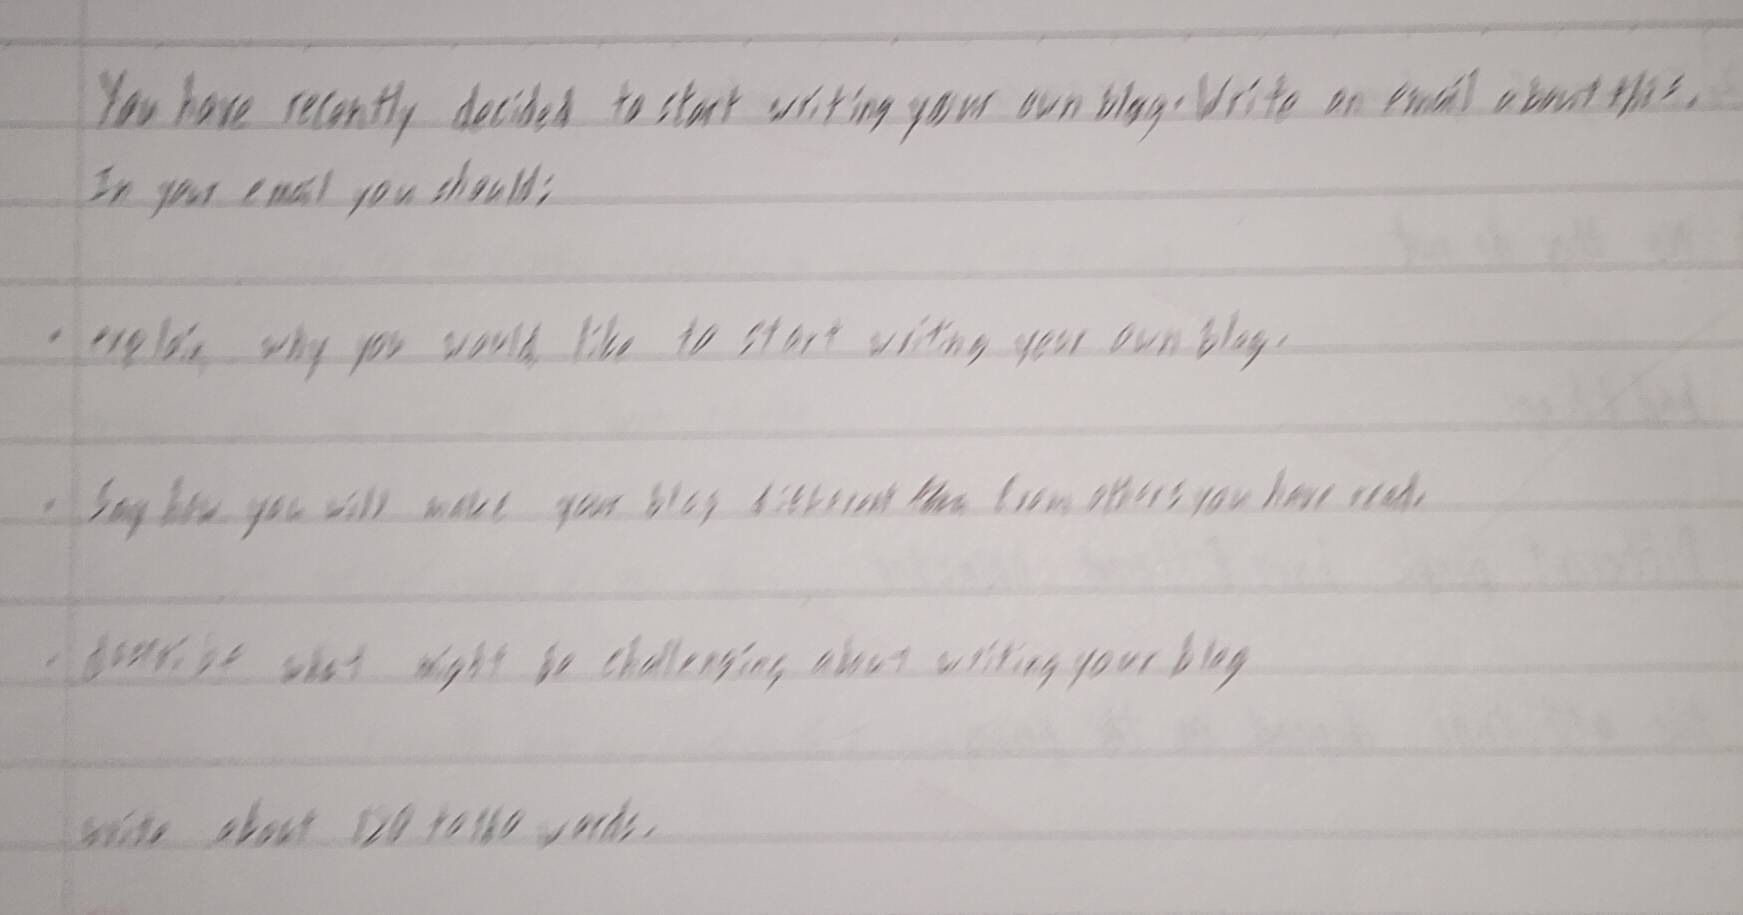 You have recently decided to start writing your own blog. Write an email about this.
In your email you should:
• explain why you would like to start writing your own blog.
• Say how you will make your blog different from others you have read.
• describe what might be challenging about writing your blog
write about 120 to 160 words.